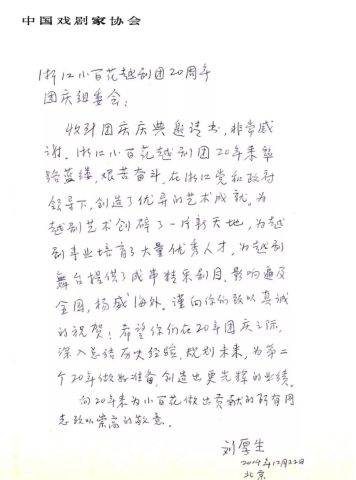 中国戏剧家协会
浙江小百花越剧团20周年
团庆组委会：
收到团庆庆典邀请书，非常感
谢。浙江小百花越剧团20年来筚
路蓝缕，艰苦奋斗，在浙江党和政府
领导下，创造了优异的艺术成就。为
越剧艺术创辟了一片新天地，为越
剧事业培育了大量优秀人才，为越剧
舞台提供了成串精采剧目，影响遍及
全国，扬威海外。谨向你们致以真诚
的祝贺！希望你们在20年团庆之际，
深入总结历史经验，规划未来，为第二
个20年做好准备，创造出更光辉的业绩。
向20年来为小百花做出贡献的所有同
志致以崇高的敬意。
刘厚生
2004年12月22日
北京